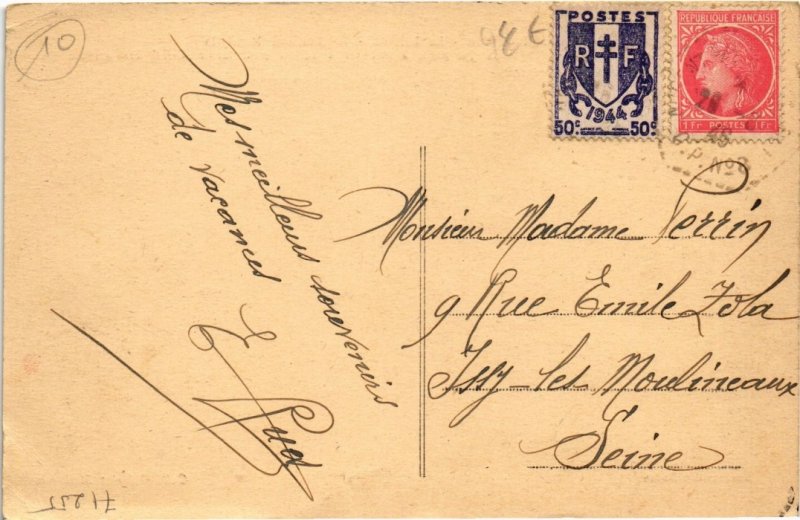 10
POSTES
R F
1944
50c 50c
REPUBLIQUE FRANÇAISE
1 Fr POSTES 1 Fr
Mes meilleurs souvenirs
de vacances
Monsieur Madame Perrin
9 Rue Emile Zola
Issy-les Moulineaux
Seine